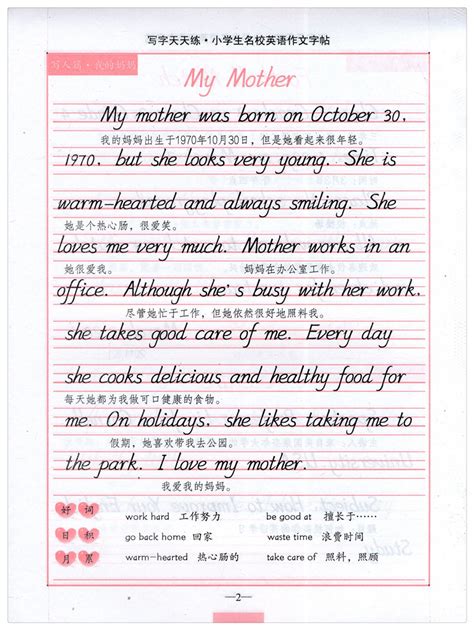 写字天天练·小学生名校英语作文字帖
写人篇·我的妈妈
My Mother
My mother was born on October 30,
我的妈妈出生于1970年10月30日,但是她看起来很年轻。
1970, but she looks very young. She is
warm-hearted and always smiling. She
她是个热心肠,很爱笑。
loves me very much. Mother works in an
她很爱我。 妈妈在办公室工作。
office. Although she's busy with her work,
尽管她忙于工作,但她依然很好地照料我。
she takes good care of me. Every day
she cooks delicious and healthy food for
每天她都为我做可口健康的食物。
me. On holidays, she likes taking me to
假期,她喜欢带我去公园。
the park. I love my mother.
我爱我的妈妈。
好词 work hard 工作努力 be good at 擅长于……
日积 go back home 回家 waste time 浪费时间
月累 warm-hearted 热心肠的 take care of 照料,照顾
—2—